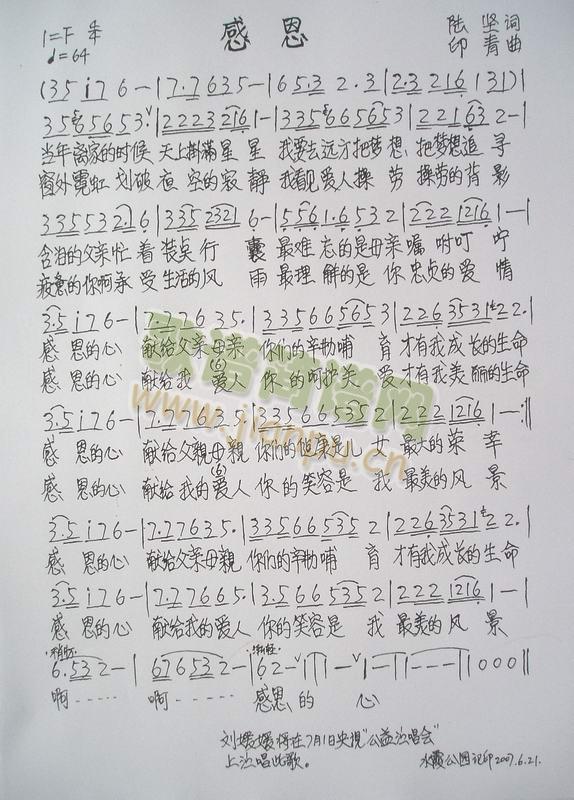 感恩
陆 坚 词
印 青 曲
1=F 4/4
♩=64
(3 5 i 7 6 - | 7.7 6 3 5 - | 6 5.3 2.3 | 2.3 2 1 6 | 3 1)|
当年离家的时候 天上掛滿星 星 我要去远方把梦想 把梦想追 寻
窗外霓虹 划破夜 空的寂 静 我看见爱人操 劳 操劳的背 影
3 3 5 5 3 2.1 6 | 3 3 5 2 3 2 1 6 - | 5 5 6 1.6 5 3 2 | 2 2 2 1 2 1 6 1 - |
含泪的父亲忙 着 装点 行 囊 最难 忘的是母亲嘱 咐叮 咛
疲惫的你啊承 受 生活的风 雨 最理 解的是 你 忠贞的爱 情
3.5 i 7 6 - | 7.7 7 6 3 5. | 3 3 5 6 6 5 6 5 3 | 2 2 6 3 5 3 1 2 2. |
感 恩的心 献给父亲母亲 你们的辛勤哺 育 才有我成长的生命
感 恩的心 献给我 爱人 你 的呵护关 爱 才有我美 丽的生命
3.5 i 7 6 - | 7.7 7 6 3 5. | 3 3 5 6 6 5 3 5 2 | 2 2 2 1 2 1 6 | 1 - :|
感 恩的心 献给父親母親 你们的健康是儿 女 最大的荣 幸
感 恩的心 献给我的爱人 你 的笑容是 我 最美的风 景
3.5 i 7 6 - | 7.7 7 6 3 5. | 3 3 5 6 6 5 3 5 2 | 2 2 6 3 5 3 1 2 2. |
感 恩的心 献给父亲母親 你们的辛勤哺 育 才有我成长的生命
3.5 i 7 6 - | 7.7 7 6 6 5. | 3.5 6 6 5 3 5 2 | 2 2 2 1 2 1 6 | 1 - |
感 恩的心 献给我的爱人 你 的笑容是 我 最美的风 景
6.5 3 2 - | 6 7 6 5 3 2 - | 6 2 - | 1 - | 1 - - | 1 - - - | 1 0 0 0 ||
啊 ····· 啊 ····· 感恩 的 心
刘媛媛将在7月1日央視"公益演唱会"
上演唱此歌。
水霞公园记印2007.6.21.
歌谱简谱网
www.jianpu.cn